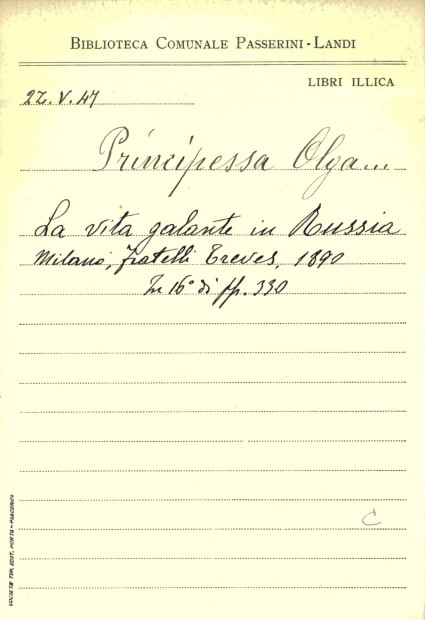 BIBLIOTECA COMUNALE PASSERINI-LANDI
LIBRI ILLICA
2Z.V.47
Principessa Olga...
La vita galante in Russia
Milano, Fratelli Treves, 1890
In 16° di pp. 330
C
SOCIETÀ TIP. EDIT. PORTA - PIACENZA